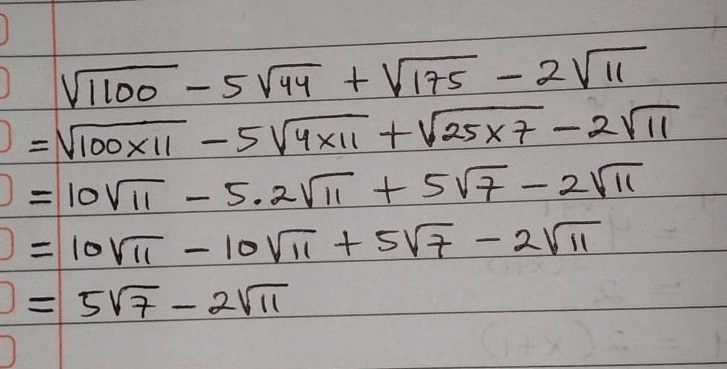 √1100 − 5√44 + √175 − 2√11
= √100×11 − 5√4×11 + √25×7 − 2√11
= 10√11 − 5.2√11 + 5√7 − 2√11
= 10√11 − 10√11 + 5√7 − 2√11
= 5√7 − 2√11